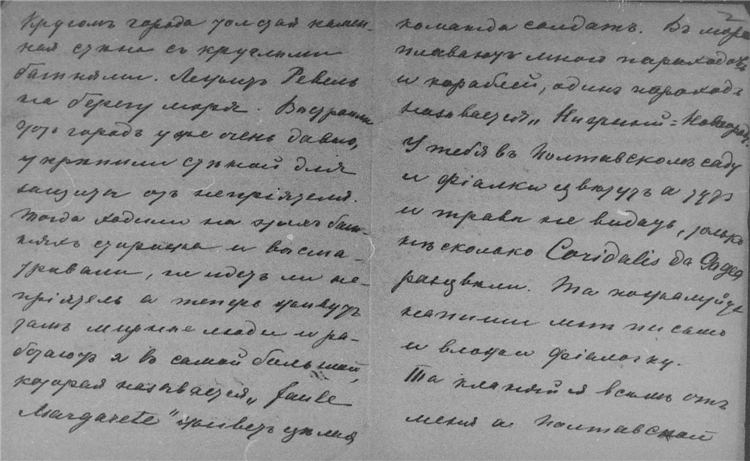 Кругомъ города толстая камен-
ная стѣна съ круглыми
башнями. Лежитъ Ревель
на берегу моря. Выстроили
этотъ городъ уже очень давно,
укрѣпили стѣной для
защиты отъ непріятеля.
Тогда ходили на этихъ баш-
няхъ сторожа и высма-
тривали, не идетъ ли не-
пріятель а теперь живутъ
тамъ мирные люди и ра-
ботаютъ я въ самой большой,
которая называется „Faule
Margarete" живетъ цѣлая
2
команда солдатъ. Въ морѣ
плаваютъ много пароходовъ
и кораблей, одинъ пароходъ
называется „Нижній-Новгородъ
У тебя въ Полтавскомъ саду
и фіалки цвѣтутъ а тутъ
и травы не видать, только
нѣсколько Coridalis да Gagea
расцвѣли. Та пожалуйста
напиши мнѣ письмо
и вложи фіалочку.
Та кланяйся всѣмъ отъ
меня а Полтавской